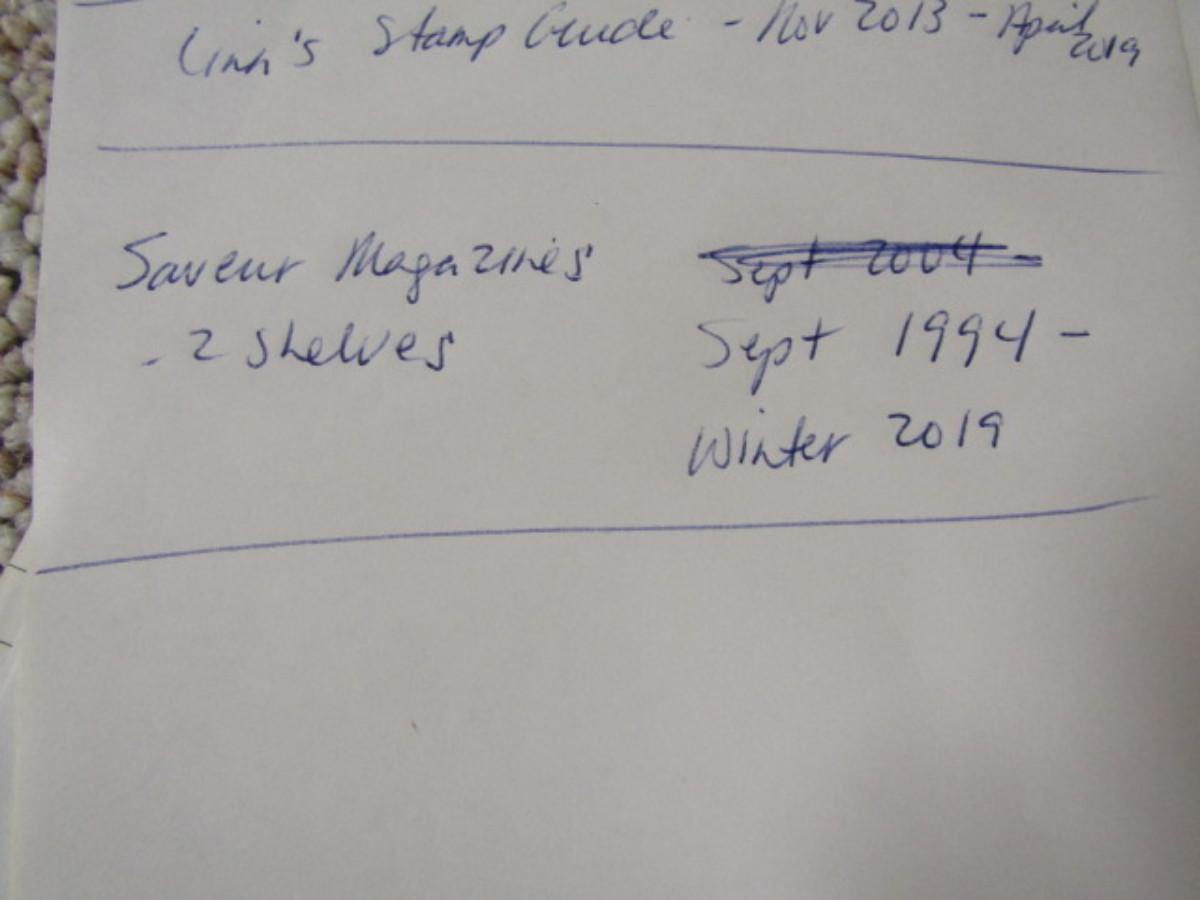 Linn's Stamp Guide - Nov 2013 - April 2019
Saveur Magazines Sept 2004 -
- 2 shelves Sept 1994 -
Winter 2019